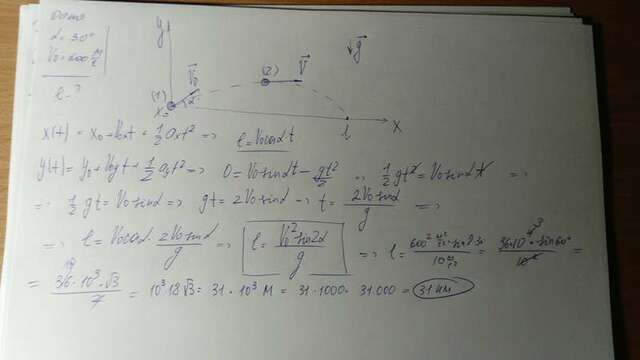 Дано
α = 30°
V₀ = 600 м/с
l - ?
y
(1)
V₀
α
x₀
(2)
V
g
l
x
x(t) = x₀ + V₀xt + 1/2 aₓt² => l = V₀cosα t
y(t) = y₀ + V₀yt + 1/2 aᵧt² => 0 = V₀sinαt - gt²/2 => 1/2 gt² = V₀sinαt =>
=> 1/2 gt = V₀sinα => gt = 2V₀sinα => t = 2V₀sinα/g =>
=> l = V₀cosα · 2V₀sinα/g => l = V₀²sin2α/g => l = 600² м²/с² · sin2·30/10 м/с² = 36·10⁴ · sin60°/10 =
= 36·10³·√3/2 = 10³18√3 = 31·10³ м = 31·1000 = 31.000 = 31 км